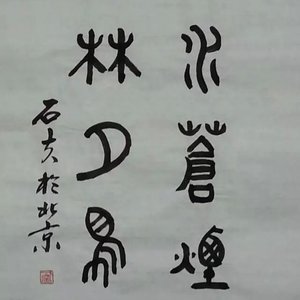 水蒼煙
林月易
石夫於北京